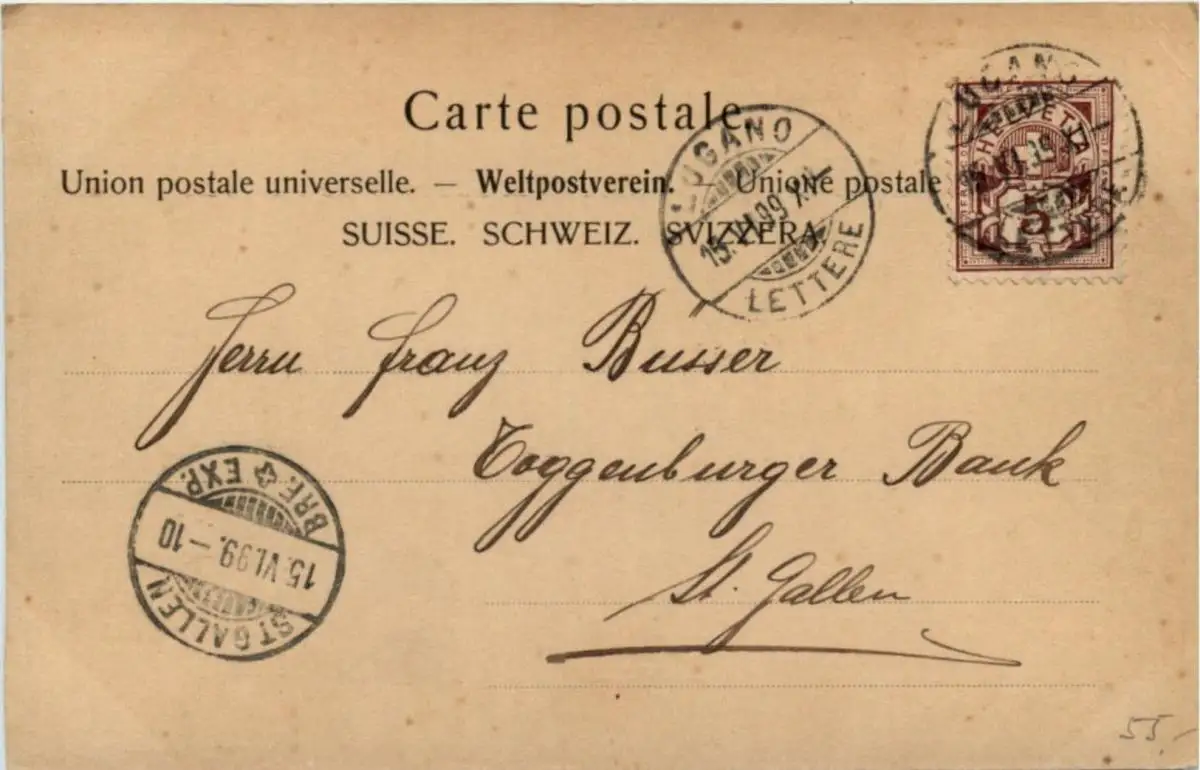 Carte postale.
Union postale universelle. — Weltpostverein. — Unione postale
SUISSE. SCHWEIZ. SVIZZERA.
LUGANO
15.VI.99.XII
LETTERE
LUGANO
HELVETIA
5
Herrn Franz Busser
Toggenburger Bank
St. Gallen
BRF. EXP.
15.VI.99.–10
ST GALLEN
55,-